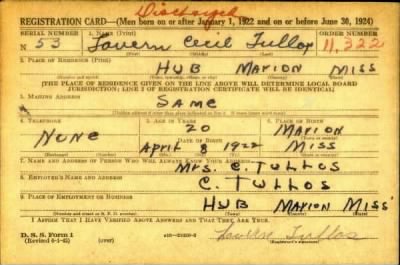 Discharged
REGISTRATION CARD—(Men born on or after January 1, 1922 and on or before June 30, 1924)
SERIAL NUMBER 1. NAME (Print) ORDER NUMBER
N 53 Lavern Cecil Tullos 11,322
2. PLACE OF RESIDENCE (Print)
HUB MARION MISS
[THE PLACE OF RESIDENCE GIVEN ON THE LINE ABOVE WILL DETERMINE LOCAL BOARD
JURISDICTION; LINE 2 OF REGISTRATION CERTIFICATE WILL BE IDENTICAL]
3. MAILING ADDRESS
SAME
4. TELEPHONE 5. AGE IN YEARS 6. PLACE OF BIRTH
NONE 20 MARION
DATE OF BIRTH
April 8 1922 MISS
7. NAME AND ADDRESS OF PERSON WHO WILL ALWAYS KNOW YOUR ADDRESS
MRS. C. TULLOS
8. EMPLOYER'S NAME AND ADDRESS
C. TULLOS
9. PLACE OF EMPLOYMENT OR BUSINESS
HUB MARION MISS
I AFFIRM THAT I HAVE VERIFIED ABOVE ANSWERS AND THAT THEY ARE TRUE.
D. S. S. Form 1
(Revised 6-1-42) (over) Lavern Tullos
(Registrant's signature)